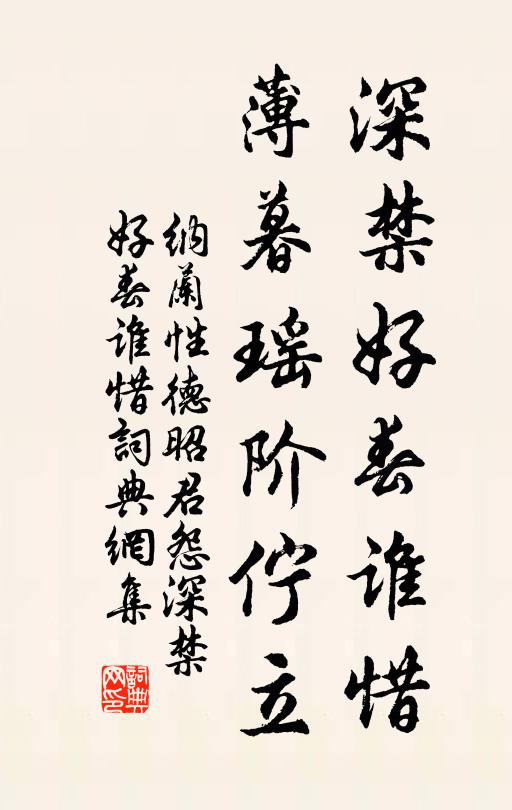 深禁好春谁惜
薄暮瑶阶伫立
纳蘭性德昭君怨深禁
好春谁惜詞典網集
詞典网印